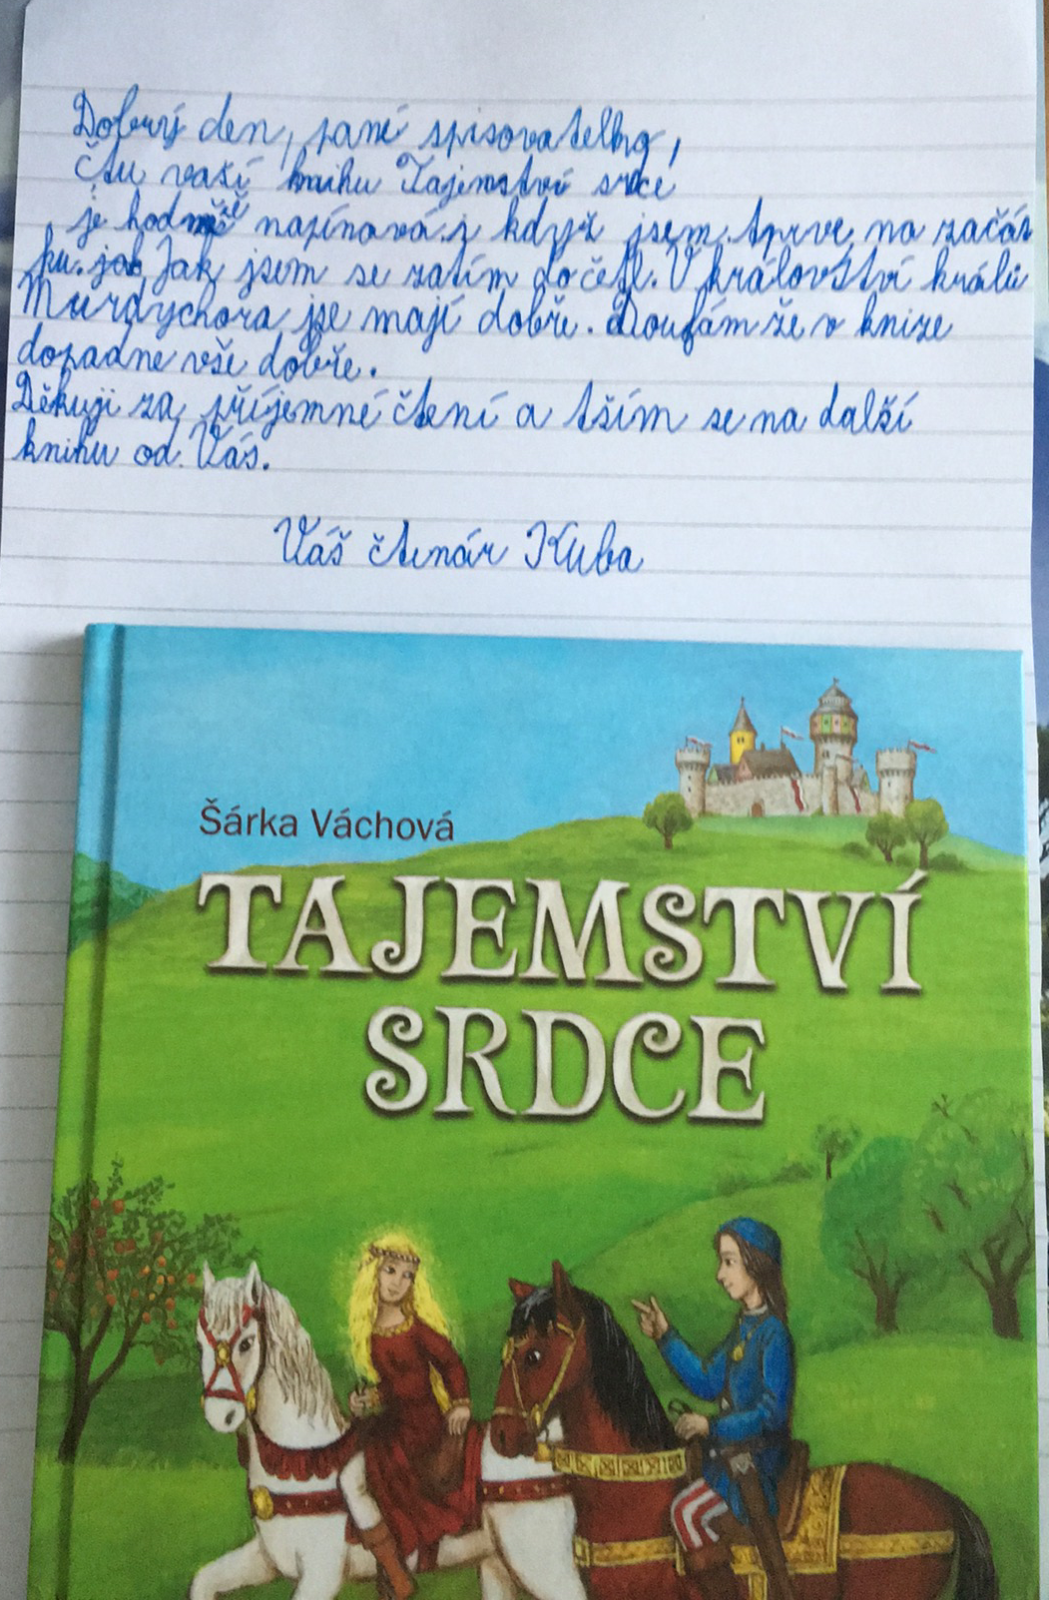 Dobrý den, paní spisovatelko,
čtu vaší knihu Tajemství srdce
je hodně napínavá i když jsem teprve na začát
ku. jak Jak jsem se zatím dočetl. V království králů
Murdychora jse mají dobře. Doufám že v knize
dopadne vše dobře.
Děkuji za příjemné čtení a tším se na další
knihu od Vás.
Váš čtenár Kuba
Šárka Váchová
TAJEMSTVÍ
SRDCE